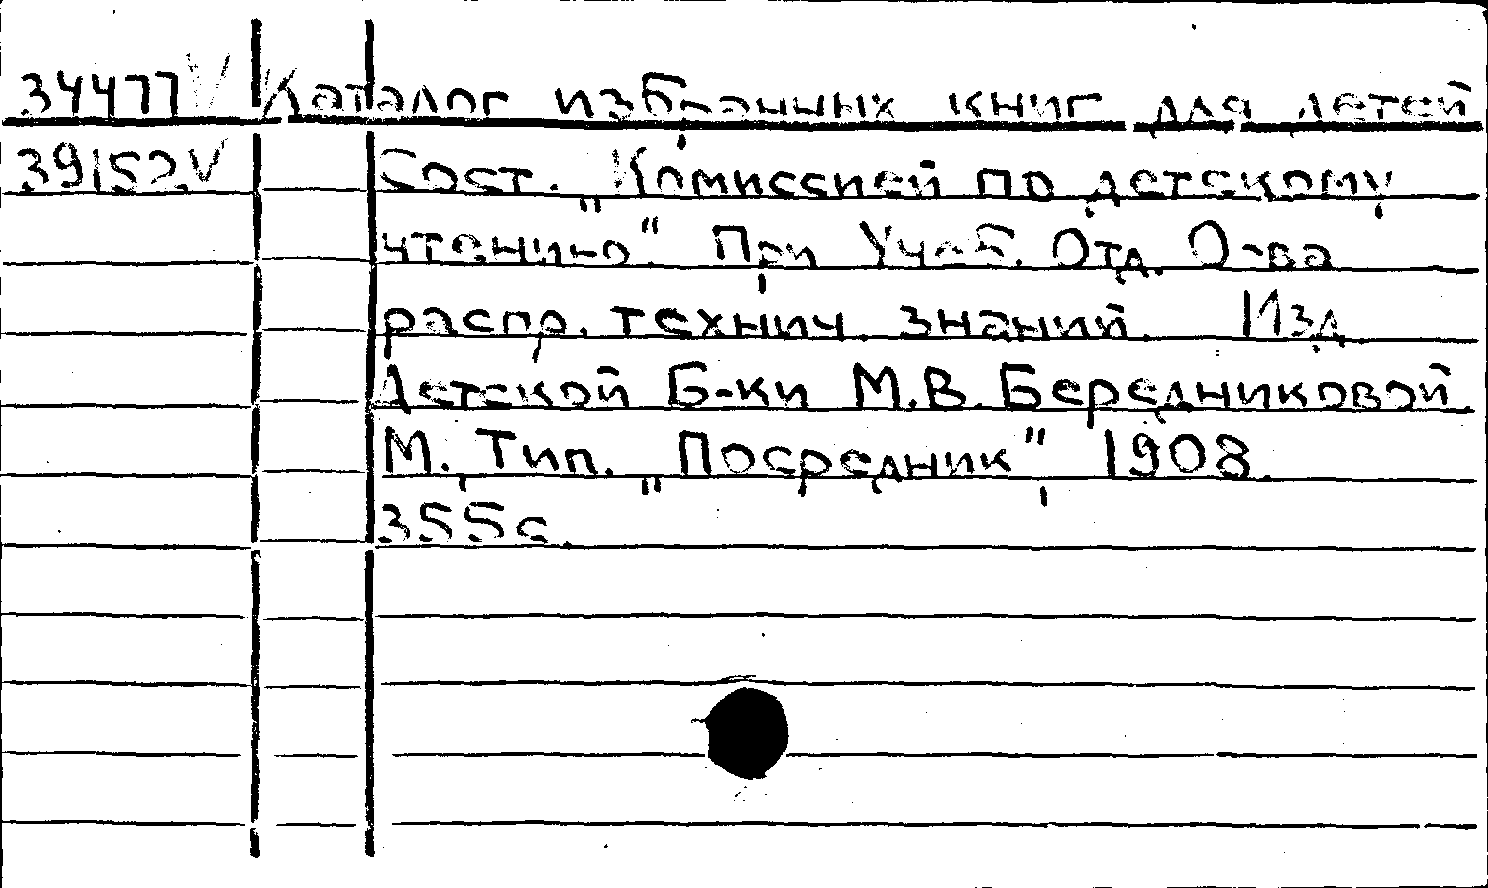 34477 V Каталог избранных книг для детей
39152 V Сост. „Комиссией по детскому
чтению“. При Учеб. Отд. О-ва
распр. технич. знаний. Изд.
Детской Б-ки М.В. Бередниковой.
М. Тип. „Посредник“, 1908.
355 с.